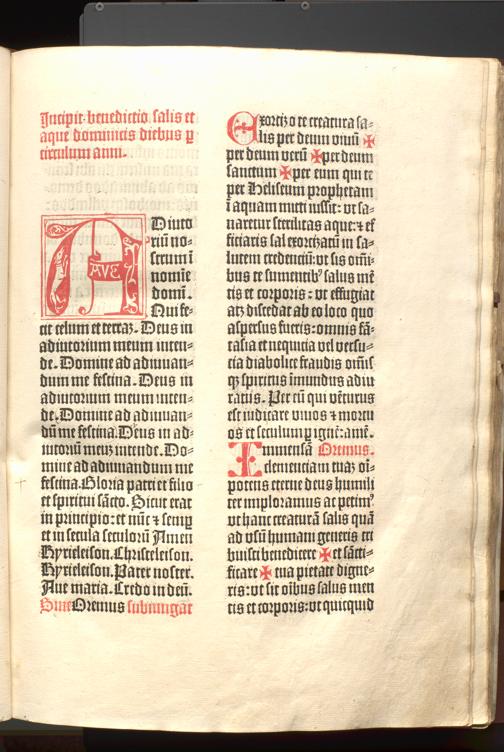 Incipit benedictio salis et
aque dominicis diebus ꝑ
circulum anni.
ADiuto
riū no-
strum ī
nomīe
domī.
Qui fe-
cit celum et terraꝫ. Deus in
adiutorium meum inten-
de. Domine ad adiuuan-
dum me festina. Deus in
adiutorium meum inten-
de. Domine ad adiuuan-
dū me festina. Deus in ad-
iutoriū meuꝫ intende. Do-
mine ad adiuuandum me
festina. Gloria patri et filio
et spiritui sācto. Sicut erat
in principio: et nūc ⁊ semꝑ
et in secula seculorū Amen
Kyrieleison. Christeleison.
Kyrieleison. Pater noster.
Aue maria. Credo in deū.
Sine Oremus subiungat
AVE
Exorcizo te creatura sa-
lis per deum viuū ✠
per deum verū ✠ per deum
sanctum ✠ per eum qui te
per Heliseum prophetam
ī aquam mitti iussit: vt sa-
naretur sterilitas aque: ⁊ ef
ficiaris sal exorcizatū in sa-
lutem credentiū: vt sis oīni-
bus te sumentibꝰ salus mē
tis et corporis: vt effugiat
atꝫ discedat ab eo loco quo
aspersus fueris: omnis fā-
tasia et nequicia vel versu-
cia diabolice fraudis oīnis
qꝫ spiritus īmundus adiu
ratus. Per eū qui vēturus
est iudicare viuos ⁊ mortu
os et seculum ꝑ ignē: amē.
Immensā Oremus.
clemenciam tuaꝫ oī-
potens eterne deus humili
ter imploramus ac petimꝰ
vt hanc creaturā salis quā
ad vsū humani generis tri
buisti benedicere ✠ et sācti-
ficare ✠ tua pietate digne-
ris: vt sit oībus salus men
tis et corporis: vt quicquid